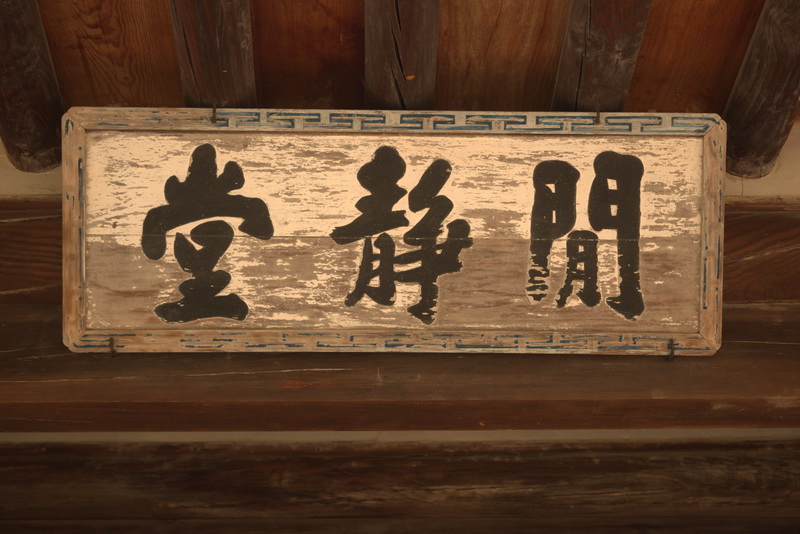 閒靜堂